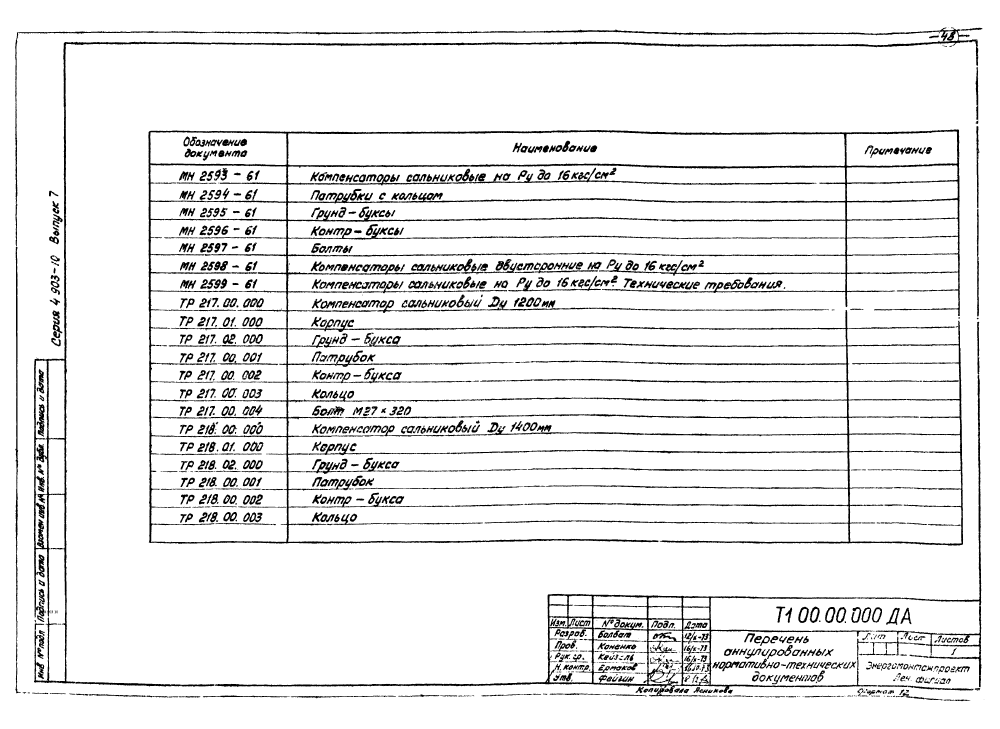 -48-
Серия 4 903-10 Выпуск 7
Обозначение документа Наименование Примечание
МН 2593 - 61 Компенсаторы сальниковые на Ру до 16 кгс/см²
МН 2594 - 61 Патрубки с кольцом
МН 2595 - 61 Грунд - буксы
МН 2596 - 61 Контр - буксы
МН 2597 - 61 Болты
МН 2598 - 61 Компенсаторы сальниковые двусторонние на Ру до 16 кгс/см²
МН 2599 - 61 Компенсаторы сальниковые на Ру до 16 кгс/см² Технические требования.
ТР 217.00.000 Компенсатор сальниковый Ду 1200мм
ТР 217.01.000 Корпус
ТР 217.02.000 Грунд - букса
ТР 217.00.001 Патрубок
ТР 217.00.002 Контр - букса
ТР 217.00.003 Кольцо
ТР 217.00.004 Болт М27 × 320
ТР 218.00.000 Компенсатор сальниковый Ду 1400мм
ТР 218.01.000 Корпус
ТР 218.02.000 Грунд - букса
ТР 218.00.001 Патрубок
ТР 218.00.002 Контр - букса
ТР 218.00.003 Кольцо
Инв. № подл Подпись и дата Взамен инв № Инв. № дубл. Подпись и дата
Т1 00.00.000 ДА
Изм. Лист № докум. Подп. Дата
Разраб. Болбат
Пров. Конанко
Рук. гр.
Н. контр. Ермаков
Утв. Файгин
Перечень
аннулированных
нормативно-технических
документов
Лит Лист Листов
1
Энергомонтажпроект
Лен. филиал
Копировала Ясникова
Формат 12